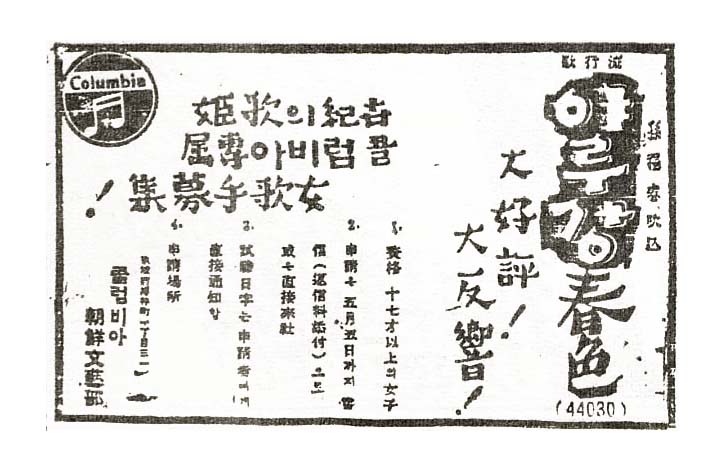 流行歌
얄루강春色
(44030)
孫福春吹込
大好評!
大反響!
世紀의歌姬
콜럼비아專屬
女歌手募集!
1. 資格 十七才以上의女子
2. 申請은 五月五日까지 書
信(返信料添付)으로
또는直接來社
3. 試驗日字는申請者에게
直接通知함
4. 申請場所
콜럼비아
朝鮮文藝部
Columbia